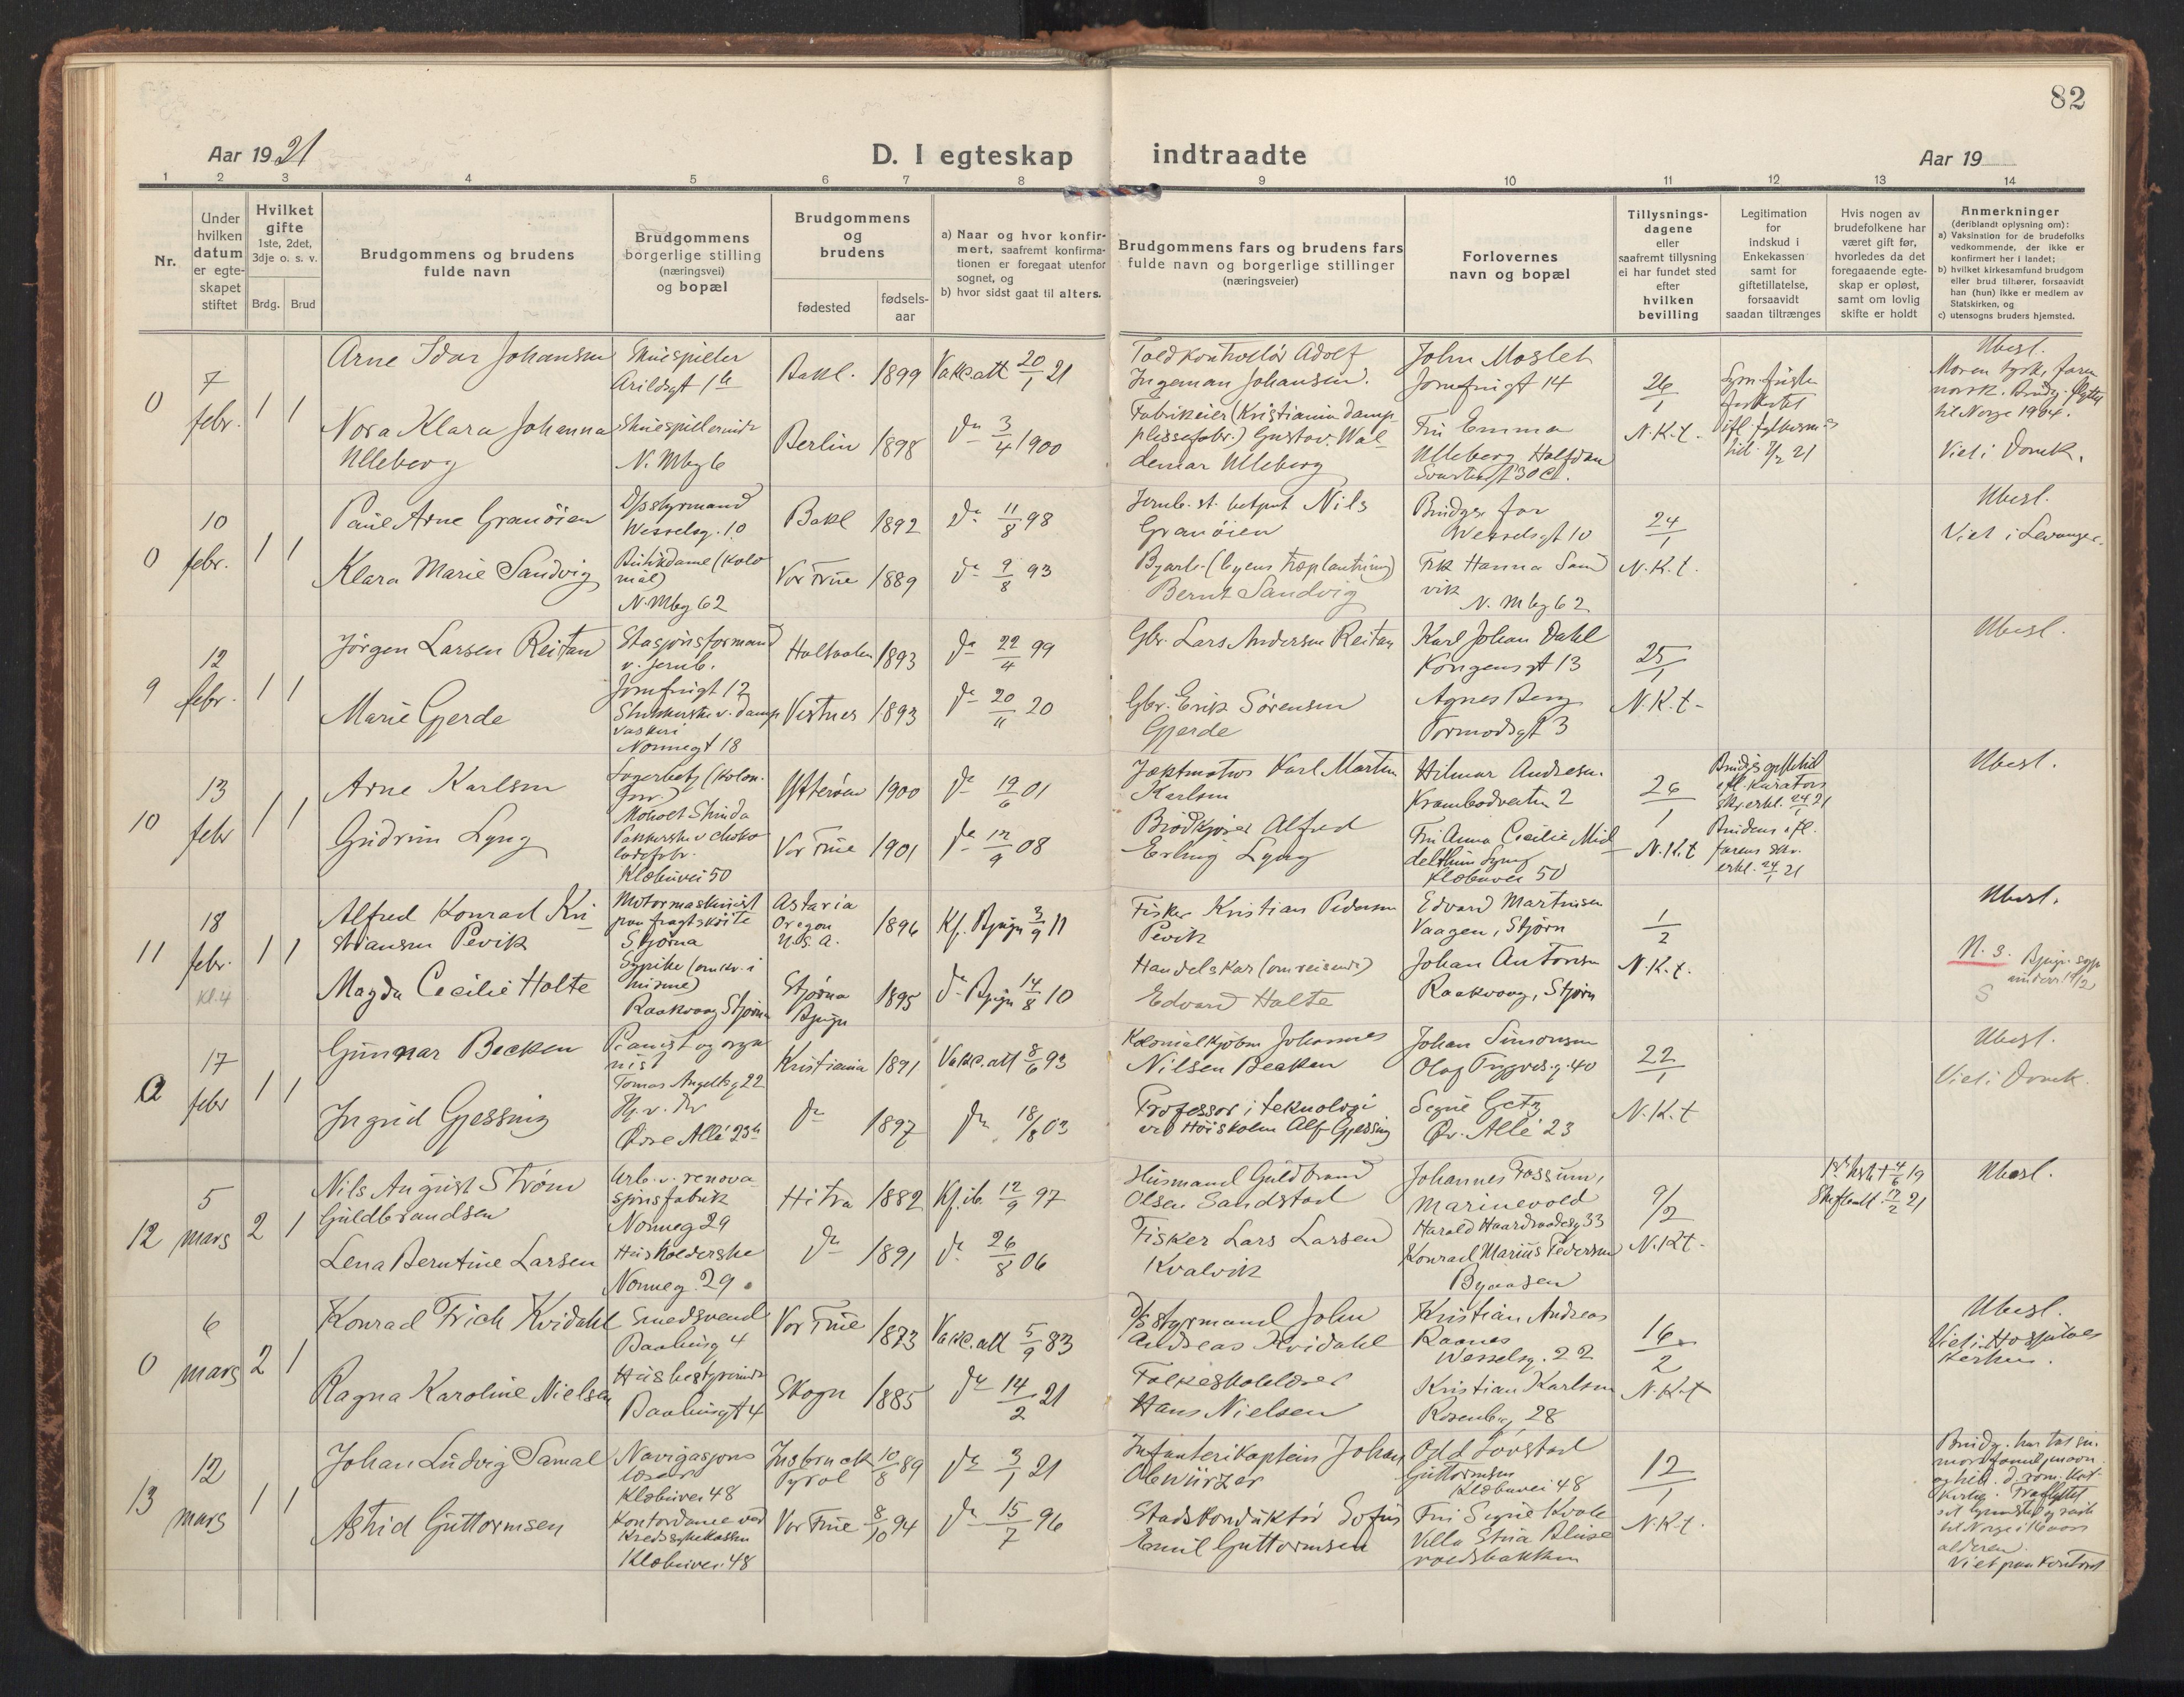 82
Aar 1921
D. I egteskap indtraadte
Aar 19
1 2 3 4 5 6 7 8 9 10 11 12 13 14
Nr.
Under
hvilken
datum
er egte-
skapet
stiftet
Hvilket
gifte
1ste, 2det,
3dje o. s. v.
Brdg. Brud
Brudgommens og brudens
fulde navn
Brudgommens
borgerlige stilling
(næringsvei)
og bopæl
Brudgommens
og
brudens
fødested
fødsels-
aar
a) Naar og hvor konfir-
mert, saafremt konfirma-
tionen er foregaat utenfor
sognet, og
b) hvor sidst gaat til alters.
Brudgommens fars og brudens fars
fulde navn og borgerlige stillinger
(næringsveier)
Forlovernes
navn og bopæl
Tillysnings-
dagene
eller
saafremt tillysning
ei har fundet sted
efter
hvilken
bevilling
Legitimation
for
indskud i
Enkekassen
samt for
giftetillatelse,
forsaavidt
saadan tiltrænges
Hvis nogen av
brudefolkene har
været gift før,
hvorledes da det
foregaaende egte-
skap er opløst,
samt om lovlig
skifte er holdt
Anmerkninger
(deriblandt oplysning om):
a) Vaksination for de brudefolks
vedkommende, der ikke er
konfirmert her i landet;
b) hvilket kirkesamfund brudgom
eller brud tilhører, forsaavidt
han (hun) ikke er medlem av
Statskirken, og
c) utensogns bruders hjemsted.
0
7
febr.
1 1
Arne Idar Johansen
Skuespiller
Arildsgt 1b
Bakl. 1899
Vakc.att 20/1 21
Toldkontrollör Adolf
Ingeman Johansen.
John Moslet
Jomfrugt 14
26/1
N.K.t.
Ubesl.
Moren tysk, faren
norsk. Brudg. flyttet
til Norge 1904.
Viet i Domk.
Nora Klara Johanna
Ulleberg
Skuespillerinde
N. Mbg 6
Berlin 1898
do 3/4 1900
Fabrikeier (Kristiania damp
plissefabr.) Gustav Wal
demar Ulleberg
Fru Emma
Ulleberg Halfdan
0
10
febr.
1 1
Paul Arne Granöien
D/sstyrmand
Wesselsg. 10
Bakl 1892
do 11/8 98
Jernb. st. betjent Nils
Granöien
Brudgs far
Wesselsgt 10
24/1
N.K.t.
Ubesl.
Viet i Levanger.
Klara Marie Sandvig
Butikdame (kolo
nial)
N. Mbg 62
Vor Frue 1889
do 9/8 93
Byarb. (byens træplantning)
Bernt Sandvig
Frk Hanna Sand
vik
N. Mbg 62
9
12
febr.
1 1
Jörgen Larsen Reitan
Stasjonsformand
v. jernb.
Jomfrugt 12
Haltdalen 1893
do 22/4 99
Gbr. Lars Andersen Reitan
Karl Johan Dahl
Kongensgt 13
25/1
N.K.t.
Ubesl.
Marie Gjerde
Strykerske v. damp
vaskeri
Nonnegt 18
Vestnes 1893
do 20/11 20
Gbr. Erik Sörensen
Gjerde
Agnes Berg
Tormodsgt 3
10
13
febr
1 1
Arne Karlsen
Lagerbetj (kolon.
forr.)
Moholt Strinda
Ytterøen 1900
do 19/6 01
Jægtmatros Karl Martin
Karlsen
Hilmar Andresen.
Krambodveiten 2
26/1
N.K.t
Ubesl.
Gudrun Lyng
Pakkerske v choko
ladefabr.
Klæbuvei 50
Vor Frue 1901
do 12/9 08
Brödkjörer Alfred
Erling Lyng
Fru Anna Cecilie Mid
delthun Lyng
Klæbuvei 50
Brudens ifl.
farens skr.
erkl. 24/1 21
11
18
febr.
Kl. 4
1 1
Alfred Konrad Kri
stiansen Pevik
Motormaskinist
paa fragtskøite
Stjørna
Astoria
Oregon
U.S.A.
1896
Kf. Bjugn 3/9 11
Fisker Kristian Pedersen
Pevik
Edvard Martinsen
Vaagen, Stjørn
1/2
N.K.t.
Ubesl.
Magda Cecilie Holte
Sypike (omkr. i
husene)
Raakvaag Stjørna
Stjørna
Bjugn
1895
do Bjugn 14/8 10
Handelskar (omreisende)
Edvard Holte
Johan Antonsen
Raakvaag, Stjørn
N. 3.
S
0
17
febr
1 1
Gunnar Becken
Pianist og orga
nist
Tomas Angellsg 22
Kristiania 1891
Vakc.att 8/6 93
Kolonialkjöbm Johannes
Nilsen Becken
Johan Simonsen
Olaf Trygves.g. 40
22/1
N.K.t
Ubesl.
Viet i Domk.
Ingrid Gjessing
Hj. v. Mor
Øvre Allé 23b
do 1897
do 18/8 03
Professor i teknologi
ved Höiskolen Alf Gjessing
Signe Getz
Øv. Allé 23
12
5
mars
2 1
Nils August Strøm
Guldbrandsen
Arb. v. renova
sjonsfabrik
Nonneg 29
Hitra 1882
Kf. ib. 12/9 97
Husmand Guldbrand
Olsen Sandstad
Johannes Fossum,
Marinevold
Harald Haardraadesg 33
9/2
N.K.t.
Ubesl.
Lena Berntine Larsen
Husholderske
Nonneg. 29
do 1891
do 26/8 06
Fisker Lars Larsen
Kvalvik
Konrad Marius Pedersen
Byaasen
0
6
mars
2 1
Konrad Frich Kvidahl
Smedsvend
Baahusg 4
Vor Frue 1873
Vakc.att 5/9 83
D/sstyrmand John
Andreas Kvidahl
Kristian Andreas
Raanes
Wesselsg. 22
16/2
N.K.t
Ubesl.
Viet i Hospitals
kirken.
Ragna Karoline Nielsen
Husbestyrerinde
Baahusgt 4
Skogn 1885
do 14/2 21
Folkeskolelærer
Hans Nielsen
Kristian Karlsen
Rosenborg 28
13
12
mars
1 1
Johan Ludvig Samal
Navigasjons
lærer
Klæbuvei 48
Insbruck
Tyrol
10/8 89
do 3/1 21
Infanterikaptein Johan
Obwürzer
Odd Lövstad
Guttormsen
Klæbuvei 48
12/1
N.K.t.
Astrid Guttormsen
Kontordame ved
Kredssykekassen
Klæbuvei 48
Vor Frue 8/10 94
do 15/7 96
Stadskonduktör Sofus
Emil Guttormsen
Fru Signe Kvale
Villa Stua
alderen.
Viet paa kontoret